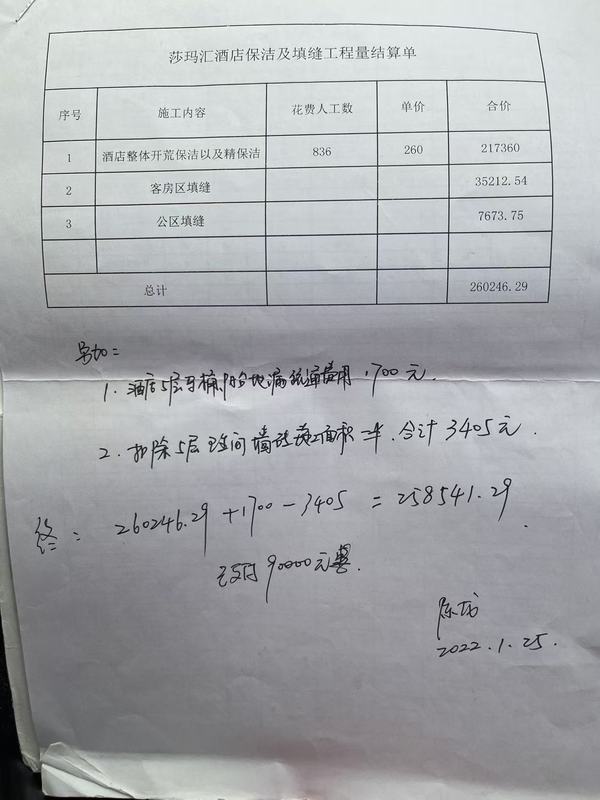 莎玛汇酒店保洁及填缝工程量结算单
序号 施工内容 花费人工数 单价 合价
1 酒店整体开荒保洁以及精保洁 836 260 217360
2 客房区填缝 35212.54
3 公区填缝 7673.75
总计 260246.29
另加:
1. 酒店5层马桶 地漏疏通费用 1700元.
2. 扣除5层 间墙砖 面积一半. 合计3405元.
终: 260246.29+1700-3405=258541.29.
已支付90000元整.
陈
2022.1.25.